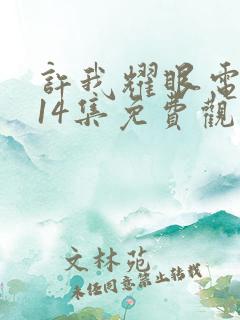 許我耀眼電
14集免費觀
文林苑
未经同意禁止转载